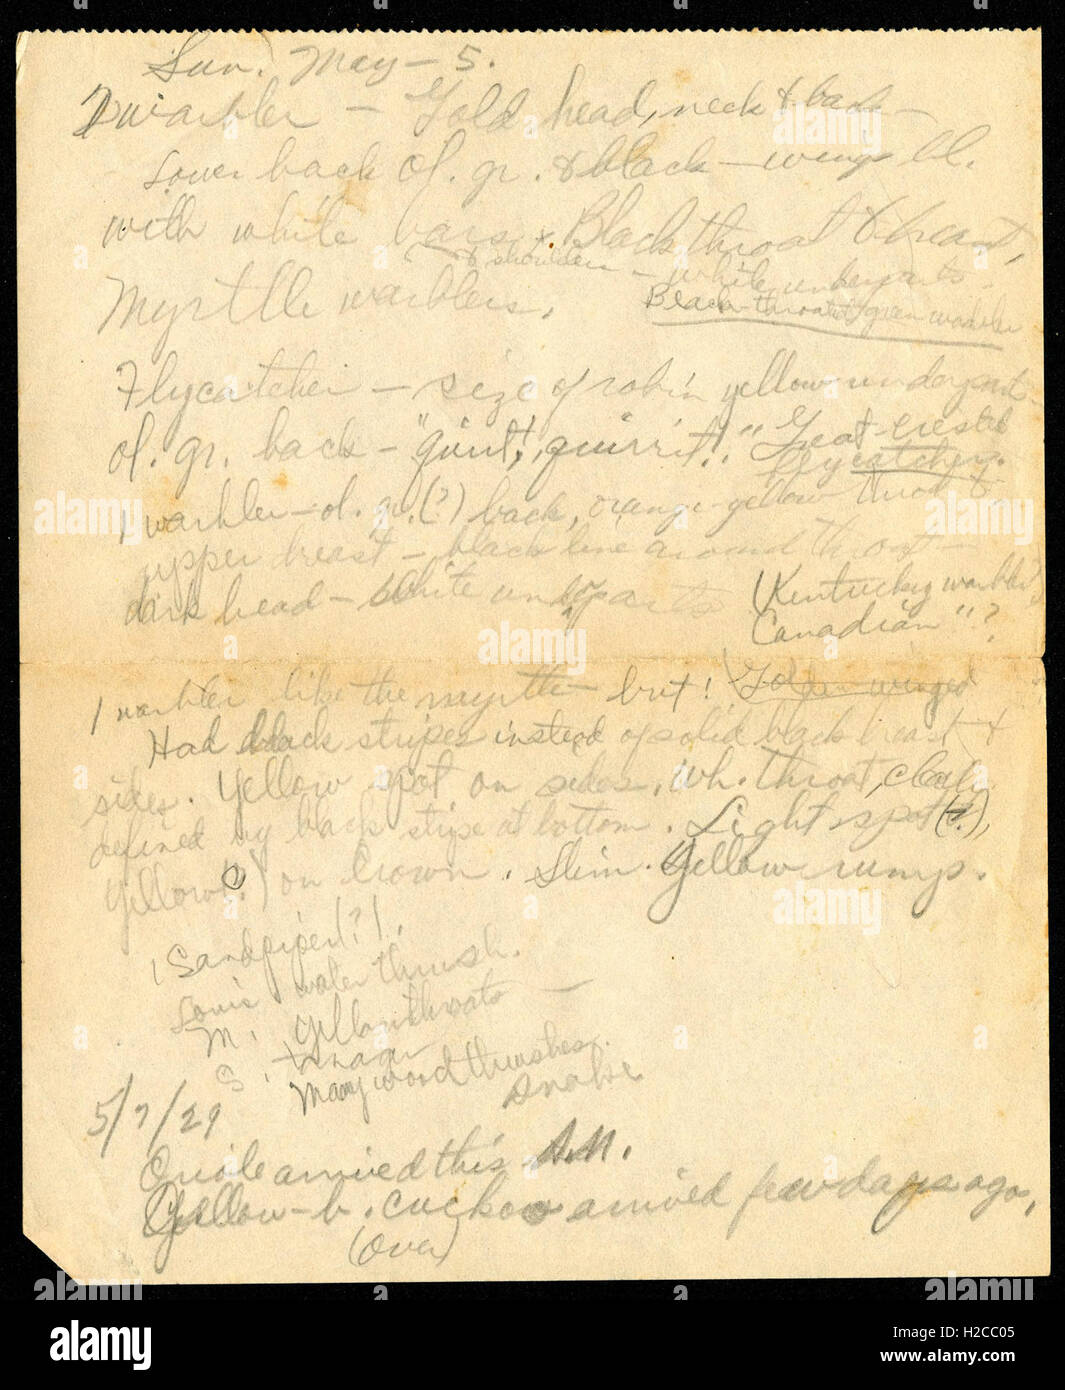 Sun. May - 5.
1 warbler - Gold head, neck & back -
Lower back ol. gr. & black - wings bl.
with white bars & Black throat & breast,
& shoulder - white underparts.
Myrtle warblers.
Black-throated green warbler
Flycatcher - size of robin yellow underparts
ol. gr. back - "quirt!, quirrit!" Great-crested
flycatcher.
1 warbler - ol. gr. (?) back, orange-yellow throat &
upper breast - black line around throat -
dark head - white underparts
(Kentucky warbler?
Canadian " ?
1 warbler like the myrtle - but! Golden-winged
Had black stripes instead of solid black breast &
sides. Yellow spot on sides, wh. throat, clearly
defined by black stripe at bottom. Light spot (?),
yellow(?) on crown. Slim. Yellow rump.
1 Sandpiper(?).
Louis. water thrush.
M. Yellowthroats -
S. tanager
Many wood thrushes.
Snake
5/7/29
Oriole arrived this A.M.
Yellow-b. cuckoo arrived few days ago,
(over)
alamy
a
alamy stock photo
H2CC05
www.alamy.com